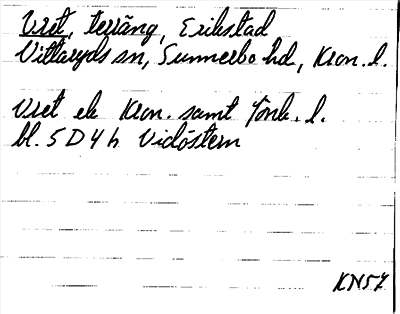 Vret, terräng, Erikstad
Vittaryds sn, Sunnerbo hd, Kron. l.
Vret ek Kron. samt Jönk. l.
bl. 5 D 4 h Vidöstern
KN57